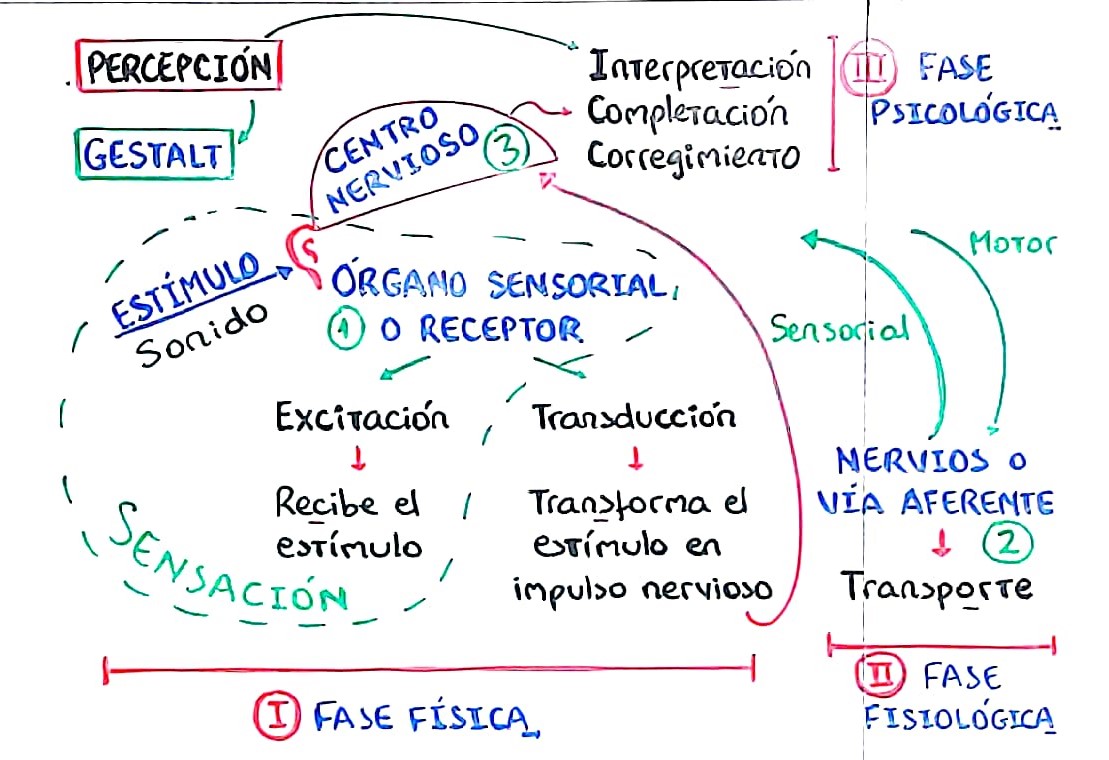 PERCEPCIÓN
GESTALT
CENTRO
NERVIOSO
3
Interpretación
Completación
Corregimiento
III FASE
PSICOLÓGICA
ESTÍMULO
Sonido
ÓRGANO SENSORIAL
1 O RECEPTOR
Excitación
Recibe el
estímulo
Transducción
Transforma el
estímulo en
impulso nervioso
SENSACIÓN
Motor
Sensorial
NERVIOS O
VÍA AFERENTE
2
Transporte
I FASE FÍSICA
II FASE
FISIOLÓGICA